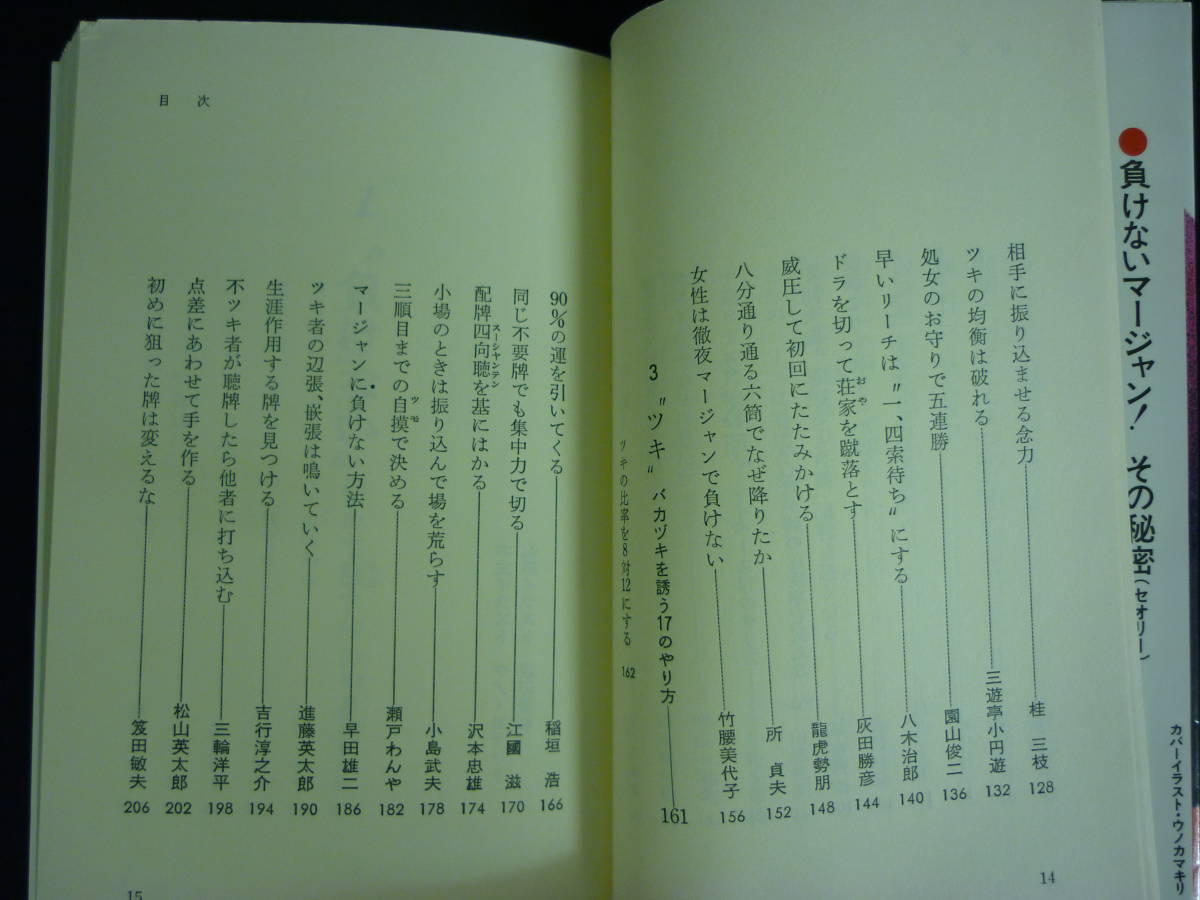 ●負けないマージャン！ その秘密(セオリー)
カバーイラスト・ウノカマキリ
相手に振り込ませる念力 桂 三枝 128
ツキの均衡は破れる 三遊亭小円遊 132
処女のお守りで五連勝 園山俊二 136
早いリーチは〝一、四索待ち〟にする 八木治郎 140
ドラを切って荘家を蹴落とす 灰田勝彦 144
おや
威圧して初回にたたみかける 龍虎勢朋 148
八分通り通る六筒でなぜ降りたか 所 貞夫 152
女性は徹夜マージャンで負けない 竹腰美代子 156
3 〝ツキ〟 バカヅキを誘う17のやり方 161
ツキの比率を8対12にする 162
14
目 次
90%の運を引いてくる 稲垣 浩 166
同じ不要牌でも集中力で切る 江國 滋 170
配牌四向聴を基にはかる 沢本忠雄 174
スーシャンテン
小場のときは振り込んで場を荒らす 小島武夫 178
三順目までの自摸で決める 瀬戸わんや 182
ツモ
マージャンに負けない方法 早田雄二 186
ツキ者の辺張、嵌張は鳴いていく 進藤英太郎 190
生涯作用する牌を見つける 吉行淳之介 194
不ツキ者が聴牌したら他者に打ち込む 三輪洋平 198
点差にあわせて手を作る 松山英太郎 202
初めに狙った牌は変えるな 笈田敏夫 206
15